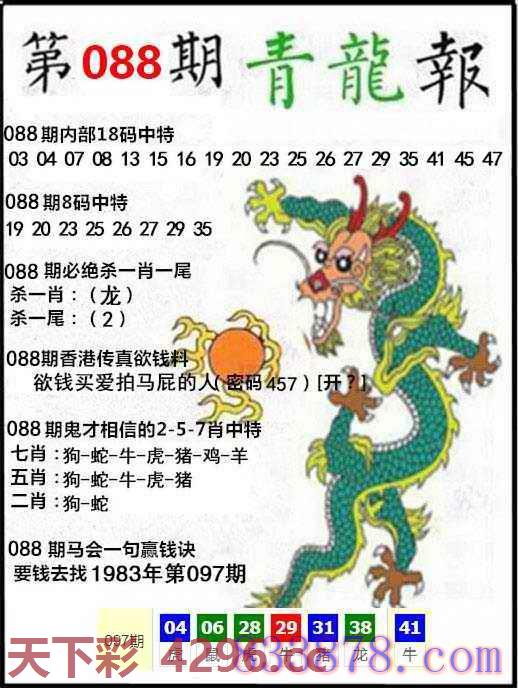 第088期 青龍報
088期内部18码中特
03 04 07 08 13 15 16 19 20 23 25 26 27 29 35 41 45 47
088期8码中特
19 20 23 25 26 27 29 35
088期必绝杀一肖一尾
杀一肖：（龙）
杀一尾：（2）
088期香港传真欲钱料
欲钱买爱拍马屁的人(密码457)[开?]
088期鬼才相信的2-5-7肖中特
七肖：狗-蛇-牛-虎-猪-鸡-羊
五肖：狗-蛇-牛-虎-猪
二肖：狗-蛇
088期马会一句赢钱诀
要钱去找1983年第097期
097期 04 06 28 29 31 38 41
虎 鼠 虎 牛 猪 龙 牛
天下彩 4296.cc
878.com